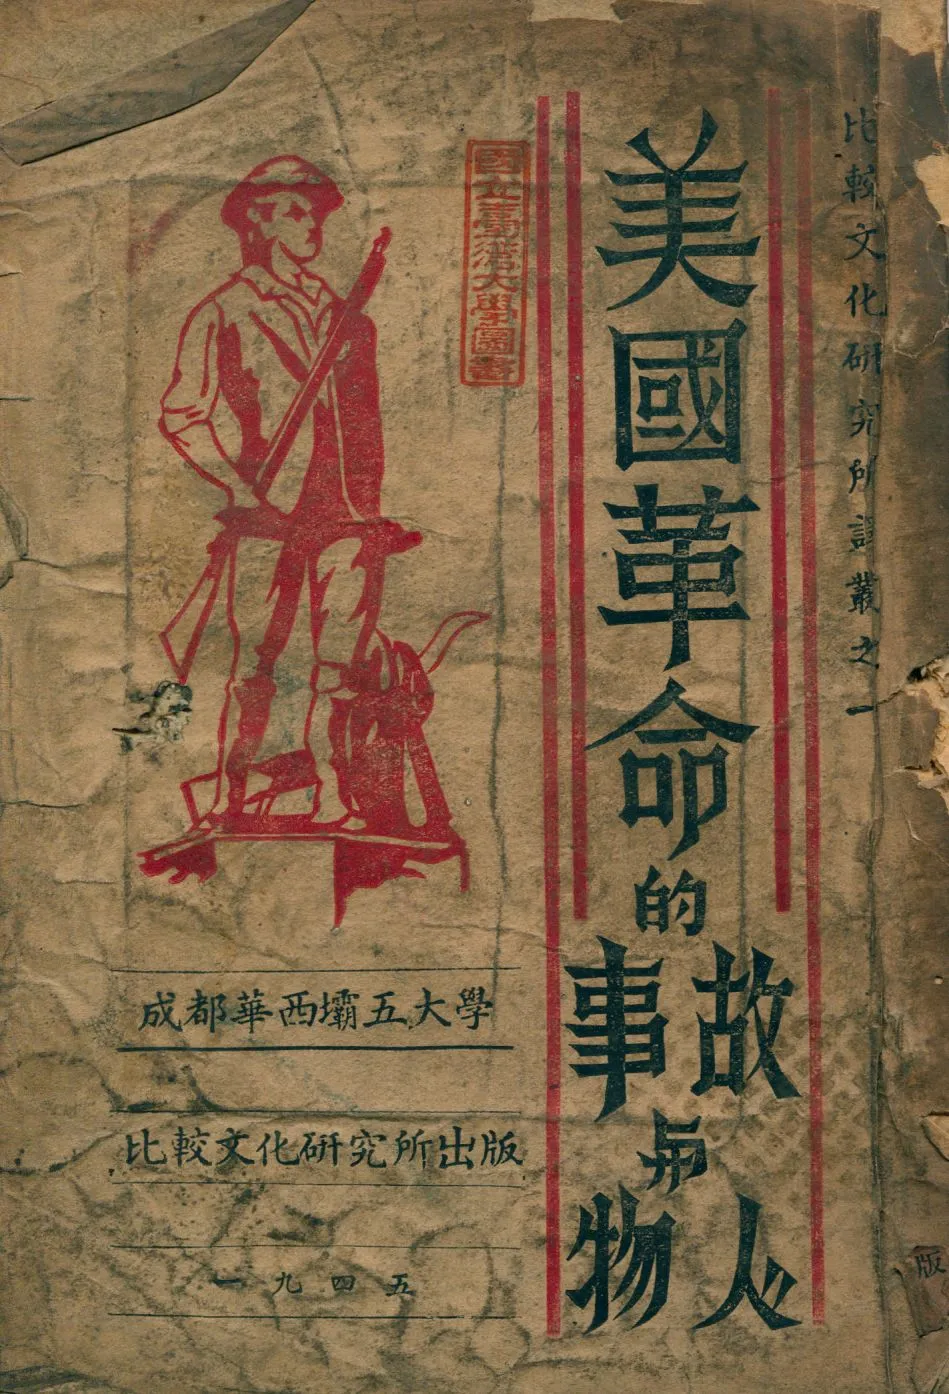 比較文化研究所譯叢之一
美國革命的故事與人物
國立臺灣大學圖書
成都華西壩五大學
比較文化研究所出版
一九四五
版